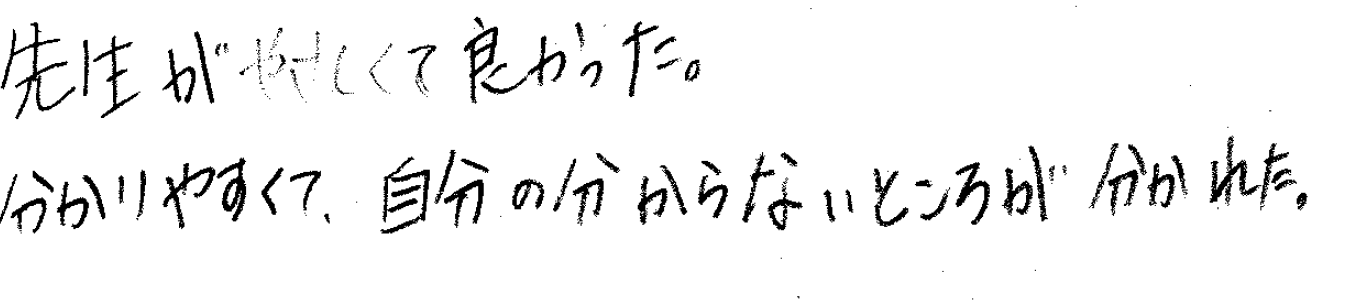 先生がやさしくて良かった。
分かりやすくて、自分の分からないところが分かれた。